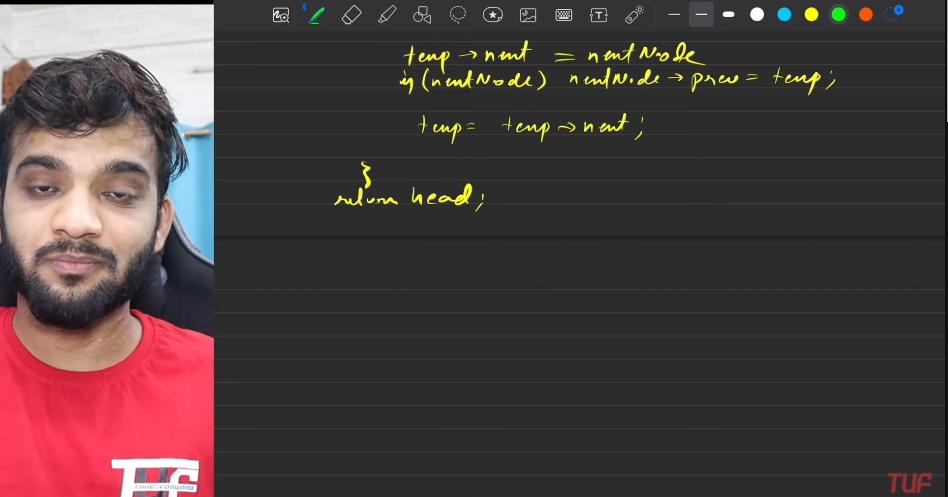 temp → next = nextNode
if (nextNode) nextNode → prev = temp;
temp = temp → next;
}
return head;
TUF
TAKEUFORWARD
TUF